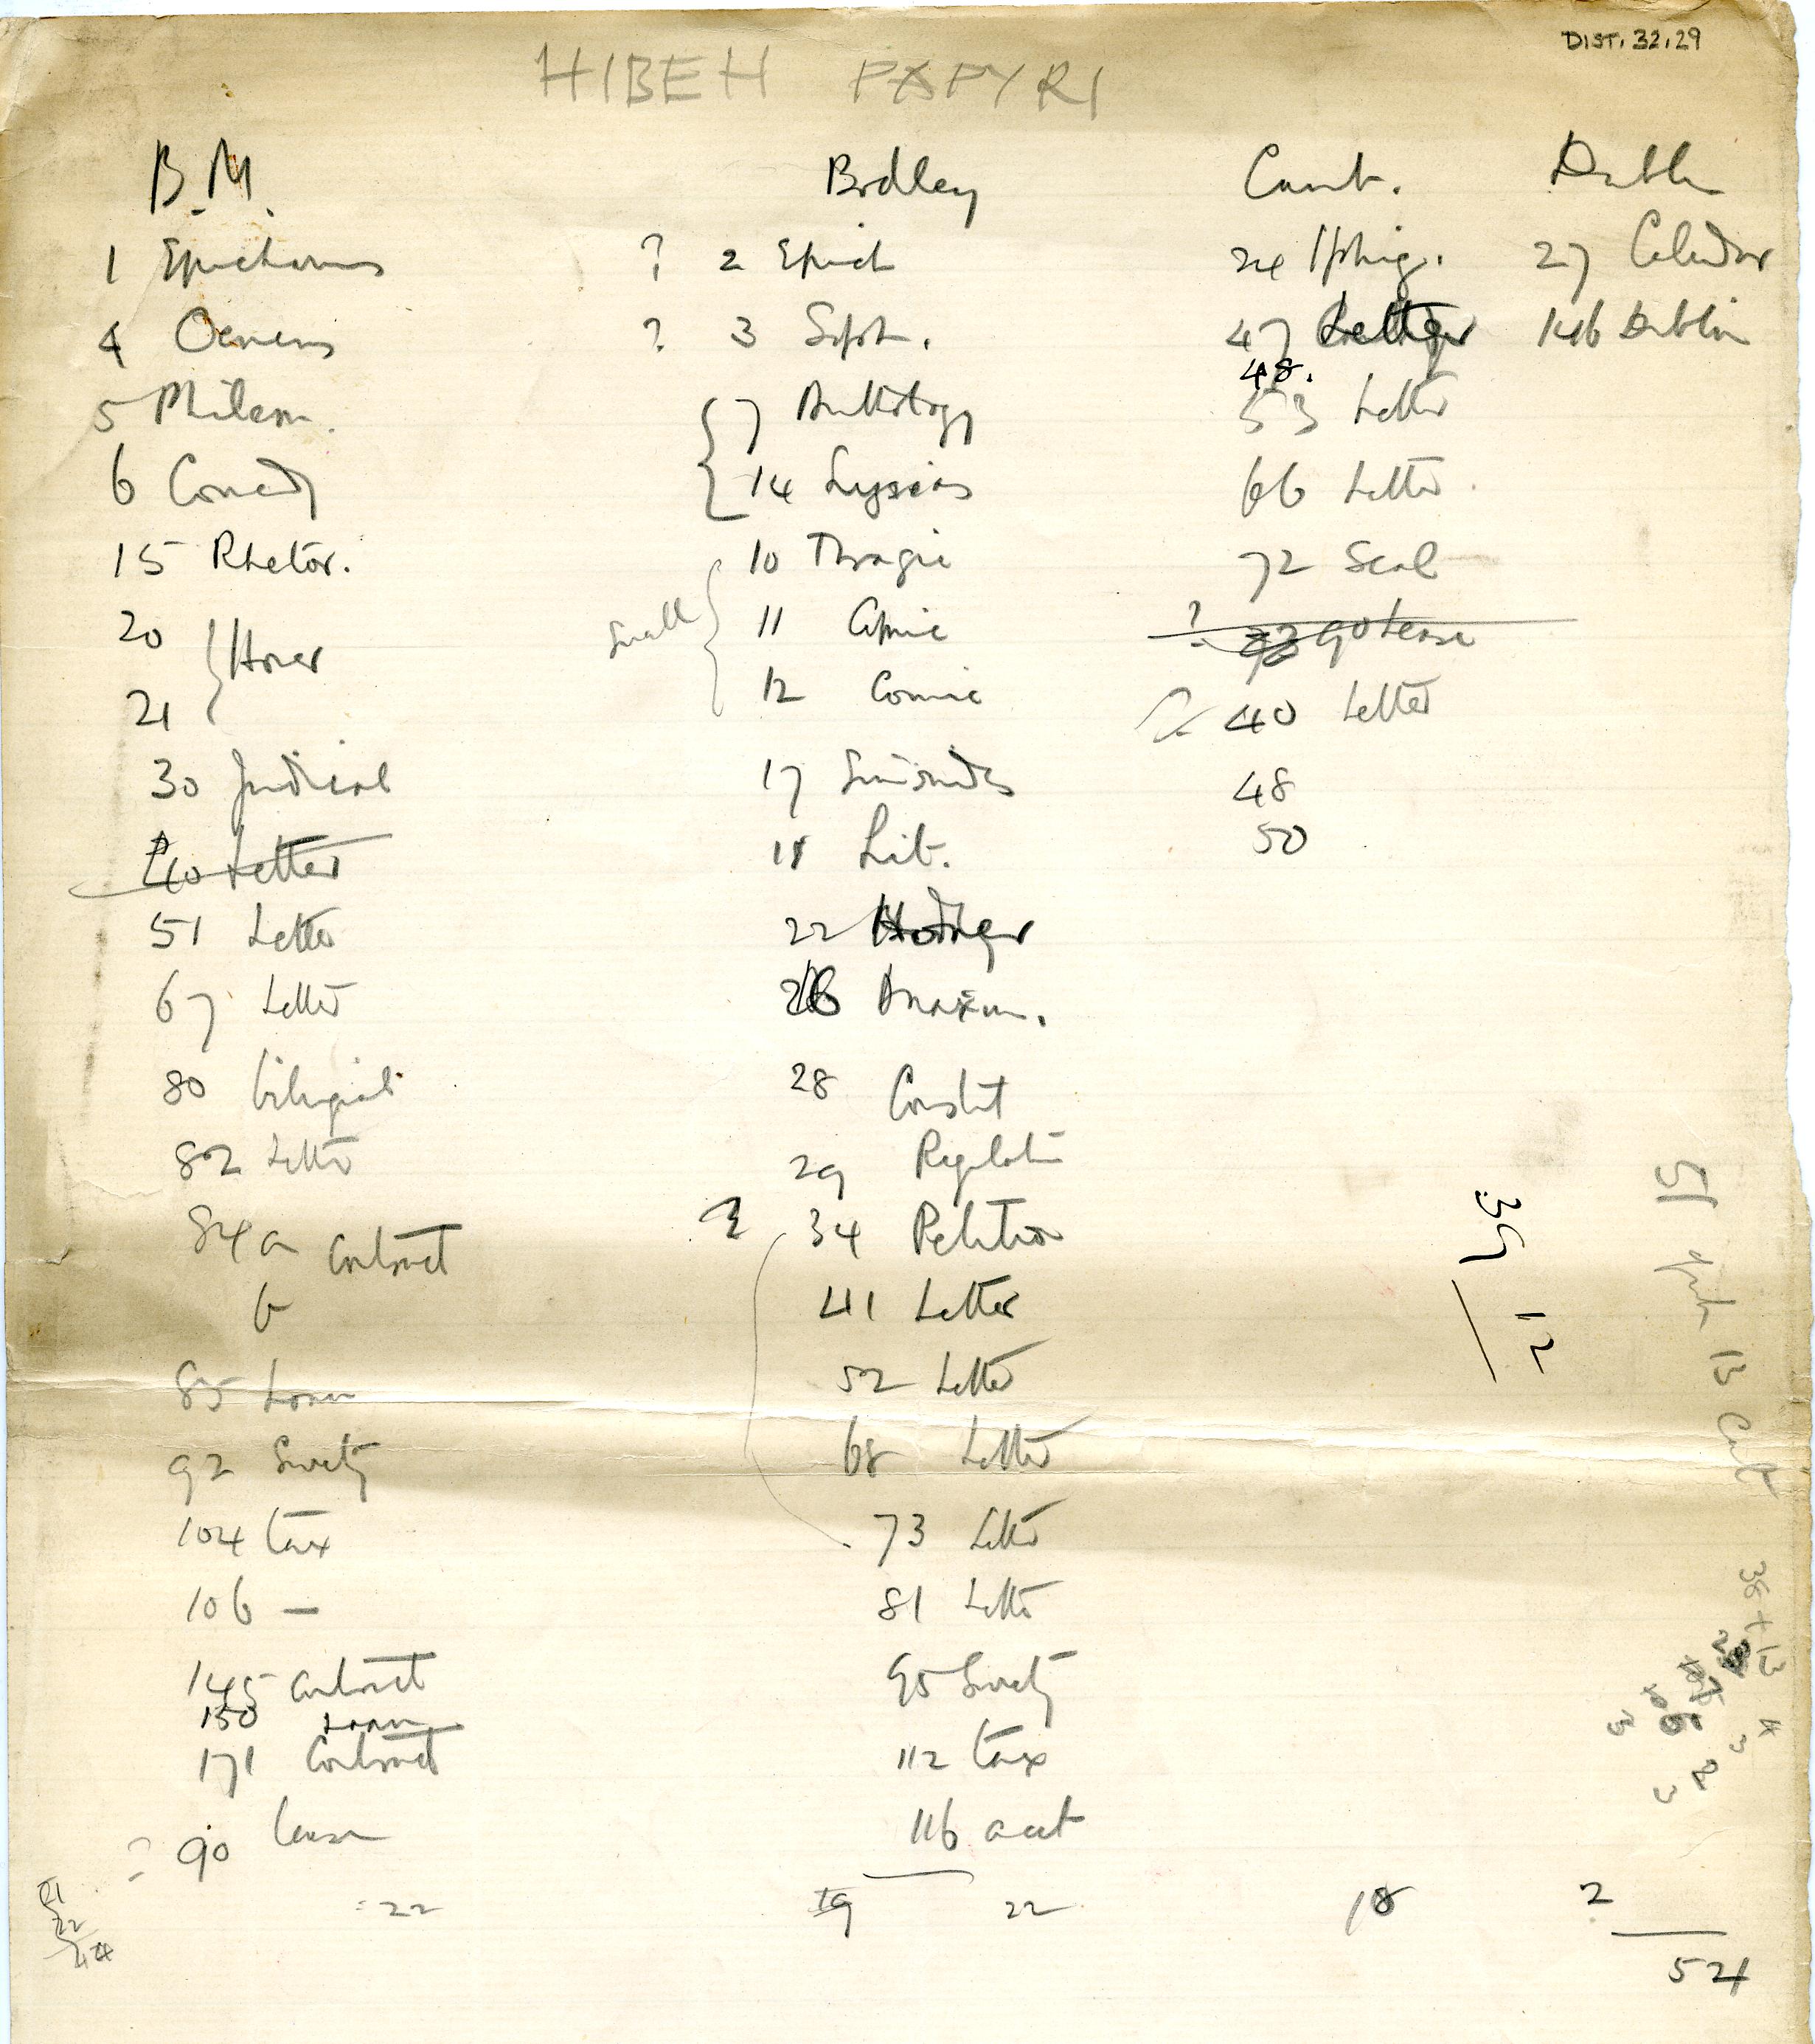 DIST. 32.29
HIBEH PAPYRI
B.M.
1 Epicharmus
4 Oeneus
5 Philem.
6 Comedy
15 Rhetor.
20
21 } Homer
30 Judicial
40 Letter
51 Letter
67 Letter
80 bilingual
82 Letter
84 a Contract
b
85 Loan
92 Surety
104 tax
106 —
145 Contract
150 Loan
171 Contract
? 90 lease
22
Bodley
? 2 Epich
? 3 Soph.
7 Anthology
14 Lysias
small { 10 Tragic
11 Comic
12 Comic
17 Simonides
18 Lit.
22 Homer
26 Anaxim.
28 Constit
29 Regulatin
34 Petition
41 Letter
52 Letter
68 Letter
73 Letter
81 Letter
95 Surety
112 tax
116 acct
19 22
Camb.
24 Iphig.
47 Letter
48.
53 Letter
66 Letter
72 Seal
? 90 Lease
40 Letter
48
50
18
Dublin
27 Calendar
146 Dublin
2
54
39
12
51
13
38 + 13